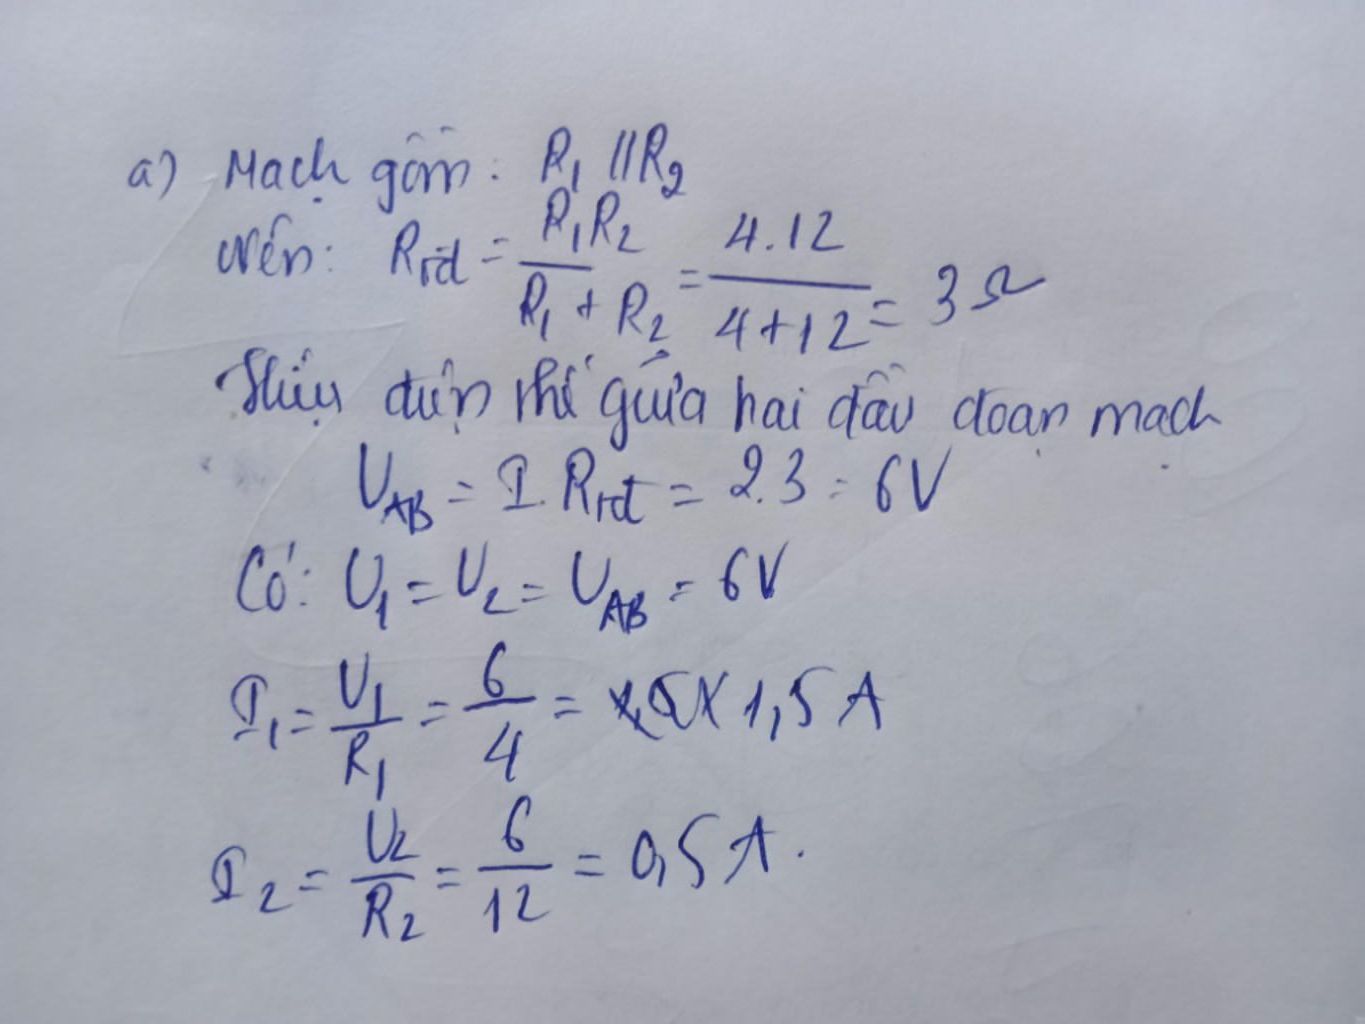 a) Mạch gồm: R₁ // R₂
Nên: Rtđ = R₁R₂ / R₁ + R₂ = 4.12 / 4+12 = 3 Ω
Hiệu điện thế giữa hai đầu đoạn mạch
U_AB = I. Rtđ = 2.3 = 6V
Có: U₁ = U₂ = U_AB = 6V
I₁ = U₁ / R₁ = 6 / 4 = 1,5 A
I₂ = U₂ / R₂ = 6 / 12 = 0,5 A.